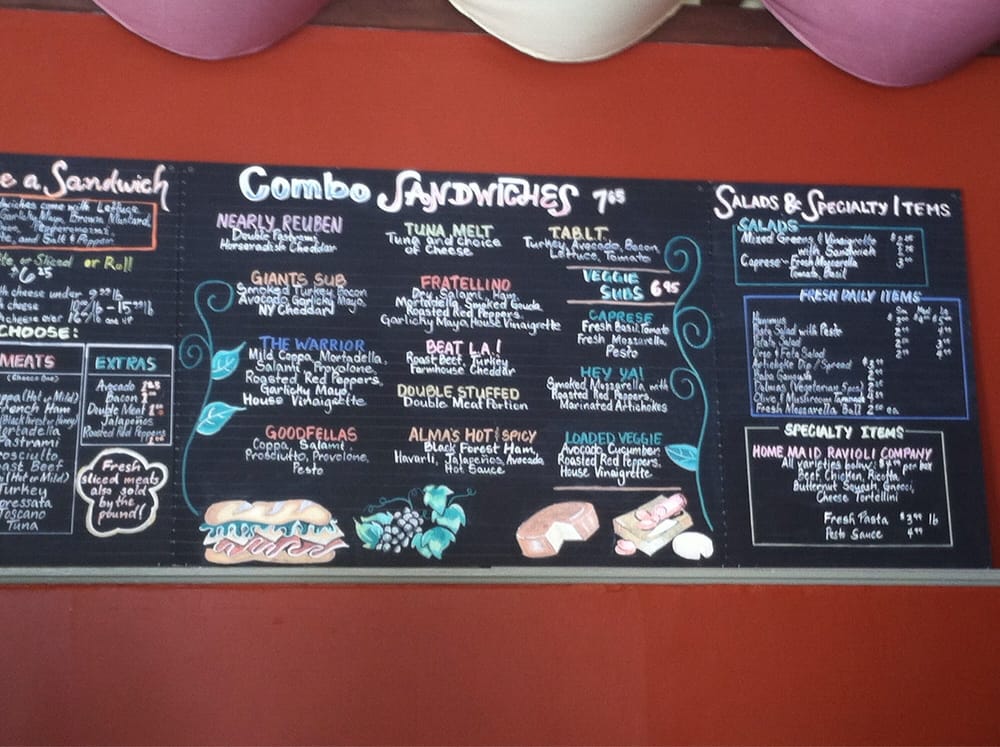 e a Sandwich
come with Lettuce
Garlicky Mayo, Brown Mustard,
Pepperoncinis,
and Salt & Pepper
or Sliced or Roll
$6.25
cheese under
cheese
cheese over
CHOOSE:
MEATS
(Choose One)
(Hot or Mild)
French Ham
(Black Forest or Honey)
Mortadella
Pastrami
Prosciutto
Roast Beef
(Hot or Mild)
Turkey
pressata
Toscano
Tuna
EXTRAS
Avocado
Bacon
Double Meat
Jalapeños
Roasted Red Peppers
Fresh
sliced meats
also sold
by the
pound!
Combo SANDWICHES 7.65
NEARLY REUBEN
Double Pastrami
Horseradish Cheddar
GIANTS SUB
Smoked Turkey, Bacon
Avocado, Garlicky Mayo,
NY Cheddar
THE WARRIOR
Mild Coppa, Mortadella,
Salami, Provolone,
Roasted Red Peppers,
Garlicky Mayo,
House Vinaigrette
GOODFELLAS
Coppa, Salami
Prosciutto, Provolone,
Pesto
TUNA MELT
Tuna and choice
of Cheese
FRATELLINO
Dry Salami, Ham,
Mortadella, Smoked Gouda
Roasted Red Peppers
Garlicky Mayo, House Vinaigrette
BEAT L.A.!
Roast Beef, Turkey
Farmhouse Cheddar
DOUBLE STUFFED
Double Meat Portion
ALMA'S HOT & SPICY
Black Forest Ham,
Havarti, Jalapeños, Avocado
Hot Sauce
T.A.B.L.T.
Turkey, Avocado, Bacon
Lettuce, Tomato
VEGGIE
SUBS 6.95
CAPRESE
Fresh Basil, Tomato
Fresh Mozzarella,
Pesto
HEY YA!
Smoked Mozzarella with
Roasted Red Peppers,
Marinated Artichokes
LOADED VEGGIE
Avocado, Cucumber,
Roasted Red Peppers,
House Vinaigrette
SALADS & SPECIALTY ITEMS
SALADS
Mixed Greens & Vinaigrette
with Sandwich
Caprese - Fresh Mozzarella
Tomato, Basil
FRESH DAILY ITEMS
Hummus
Pasta Salad with Pesto
Potato Salad
Orzo & Feta Salad
Artichoke Dip / Spread
Baba Ganoush
Dolmas (Vegetarian 5pcs)
Olive & Mushroom Tapenade
Fresh Mozzarella Ball ea
SPECIALTY ITEMS
HOME MAID RAVIOLI COMPANY
All varieties below: per box
Beef, Chicken, Ricotta
Butternut Squash, Gnocci,
Cheese Tortellini
Fresh Pasta $3.99 lb
Pesto Sauce 4.99